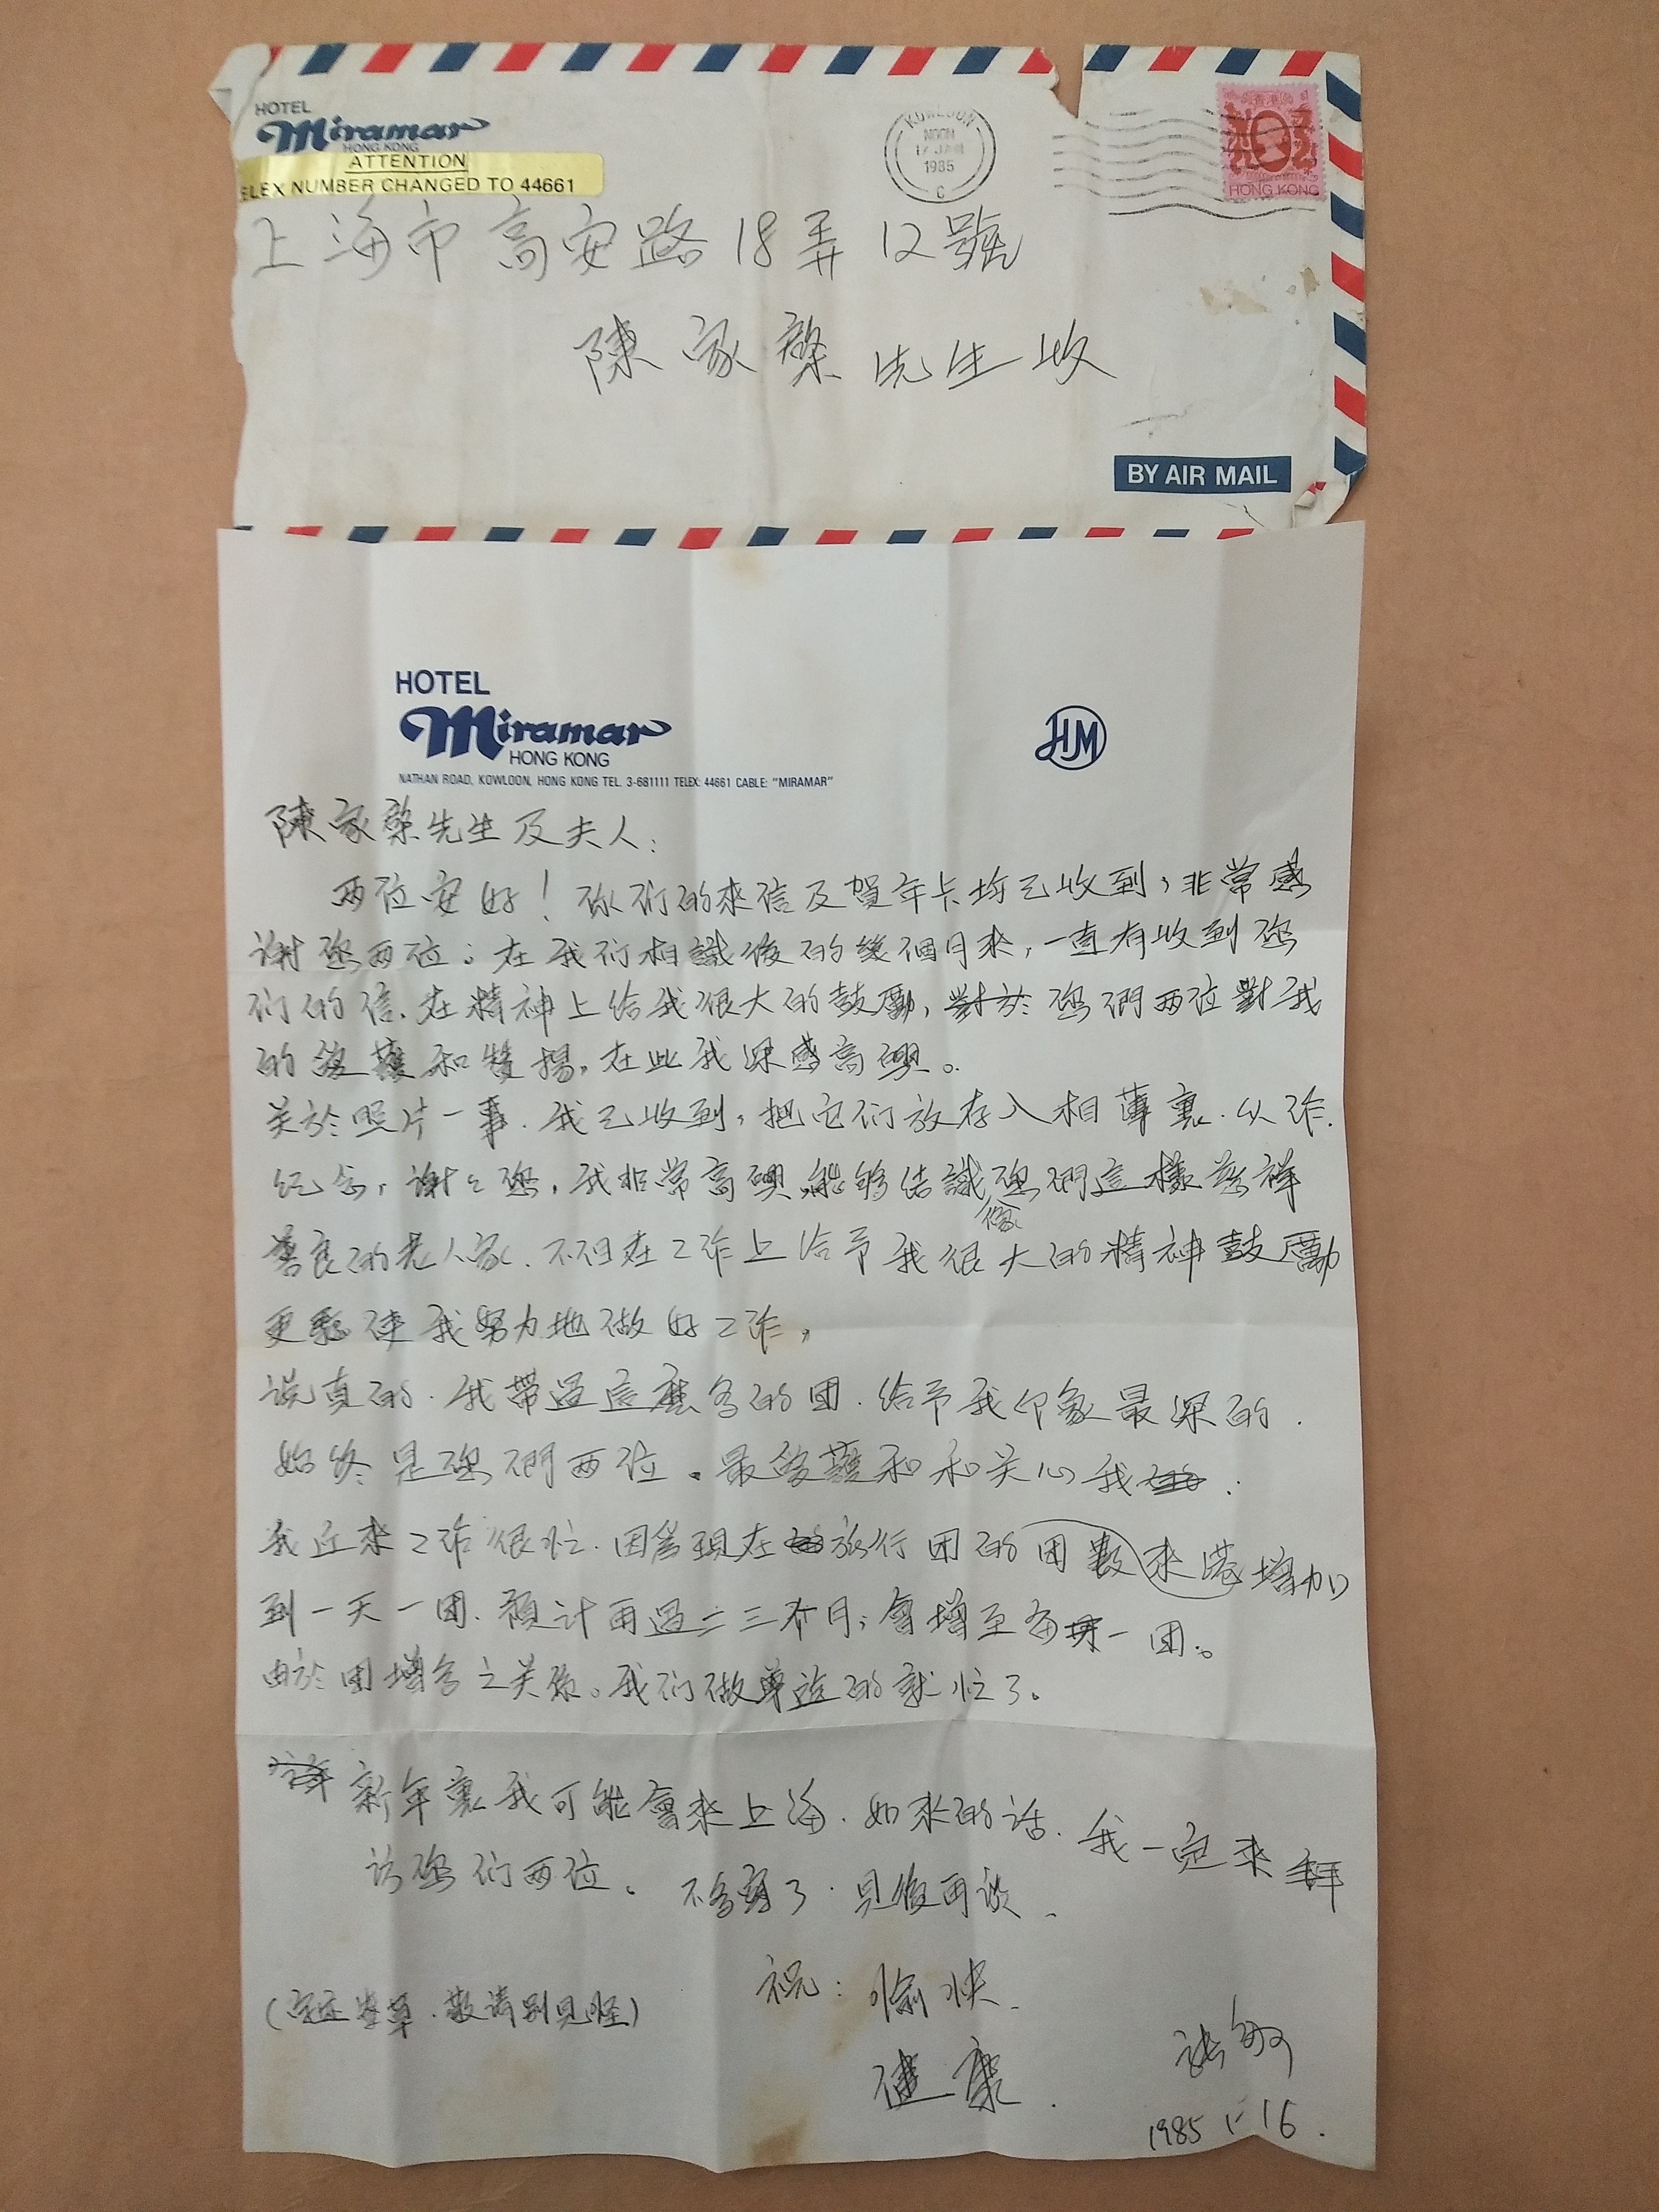 HOTEL
Miramar
HONG KONG
ATTENTION
ELEX NUMBER CHANGED TO 44661
KOWLOON
NOON
JAN
1985
C
HONG KONG
上海市高安路18弄12號
陳家棨先生收
BY AIR MAIL
HOTEL
Miramar
HONG KONG
NATHAN ROAD, KOWLOON, HONG KONG TEL. 3-681111 TELEX: 44661 CABLE: "MIRAMAR"
HM
陳家棨先生及夫人:
两位安好!你们的來信及賀年卡均已收到,非常感
谢您两位。在我们相識後的幾個月來,一直有收到您
们的信.在精神上给我很大的鼓勵,對於您們两位對我
的愛護和贊揚,在此我深感高興。
关於照片一事.我已收到,把它们放存入相薄裏.以作.
纪念,谢々您,我非常高興能够结識像您們這樣慈祥
善良的老人家.不但在工作上给予我很大的精神鼓勵
更使我努力地做好工作,
说真的.我帶過這麽多的团.给予我印象最深的.
始终是您們两位.最愛護和和关心我.
我近來工作很忙.因爲現在旅行团的团數來港增加
到一天一团.預计再過二三个月,會增至每一团。
由於团增多之关係。我们做導遊的就忙了。
新年裏我可能會來上海.如來的话.我一定來拜
访您们两位。不多寫了.見後再谈.
祝:愉快.
健康.
(字迹潦草.敬请别見怪)
张敏
1985 1-16.